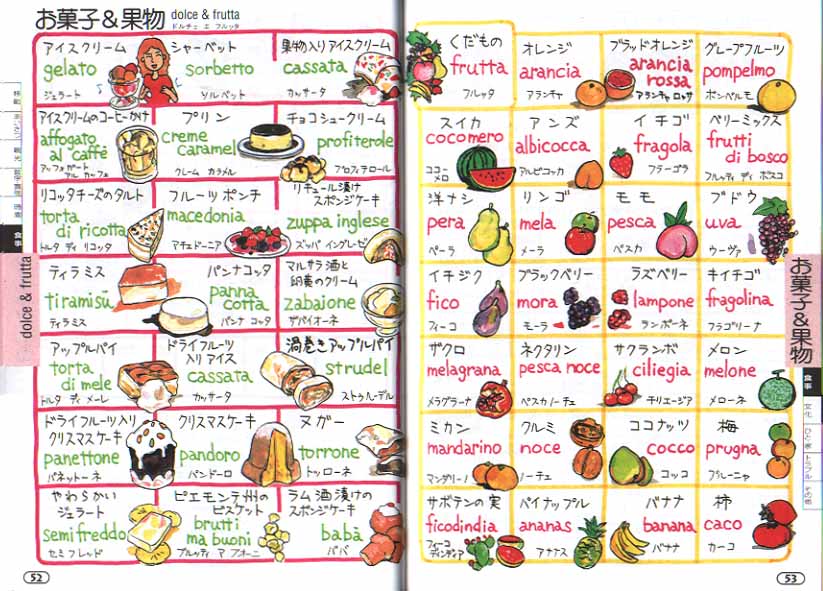 お菓子&果物 dolce & frutta
ドルチェ エ フルッタ
アイスクリーム
gelato
ジェラート
シャーベット
sorbetto
ソルベット
果物入りアイスクリーム
cassata
カッサータ
アイスクリームのコーヒーかけ
affogato
al caffè
アッフォガート
アル カッフェ
プリン
creme
caramel
クレーム カラメル
チョコシュークリーム
profiterole
プロフィテロール
リコッタチーズのタルト
torta
di ricotta
トルタ ディ リコッタ
フルーツ ポンチ
macedonia
マチェドーニア
リキュール漬け
スポンジケーキ
zuppa inglese
ズッパ イングレーゼ
ティラミス
tiramisù
ティラミス
パンナコッタ
panna
cotta
パンナ コッタ
マルサラ酒と
卵黄のクリーム
zabaione
ザバイオーネ
アップルパイ
torta
di mele
トルタ ディ メーレ
ドライフルーツ
入りアイス
cassata
カッサータ
渦巻きアップルパイ
strudel
ストゥルーデル
ドライフルーツ入り
クリスマスケーキ
panettone
パネットーネ
クリスマスケーキ
pandoro
パンドーロ
ヌガー
torrone
トッローネ
やわらかい
ジェラート
semifreddo
セミフレッド
ピエモンテ州の
ビスケット
brutti
ma buoni
ブルッティ マ ブオーニ
ラム酒漬けの
スポンジケーキ
babà
ババ
dolce & frutta
食事
52
くだもの
frutta
フルッタ
オレンジ
arancia
アランチャ
ブラッドオレンジ
arancia
rossa
アランチャ ロッサ
グレープフルーツ
pompelmo
ポンペルモ
スイカ
cocomero
ココーメロ
アンズ
albicocca
アルビコッカ
イチゴ
fragola
フラーゴラ
ベリーミックス
frutti
di bosco
フルッティ ディ ボスコ
洋ナシ
pera
ペーラ
リンゴ
mela
メーラ
モモ
pesca
ペスカ
ブドウ
uva
ウーヴァ
イチジク
fico
フィーコ
ブラックベリー
mora
モーラ
ラズベリー
lampone
ランポーネ
キイチゴ
fragolina
フラゴリーナ
ザクロ
melagrana
メラグラーナ
ネクタリン
pesca noce
ペスカノーチェ
サクランボ
ciliegia
チリエージア
メロン
melone
メローネ
ミカン
mandarino
マンダリーノ
クルミ
noce
ノーチェ
ココナッツ
cocco
コッコ
梅
prugna
プルーニャ
サボテンの実
ficodindia
フィーコ
ディンディア
パイナップル
ananas
アナナス
バナナ
banana
バナナ
柿
caco
カーコ
お菓子&果物
食事
文化
トラブル
その他
53